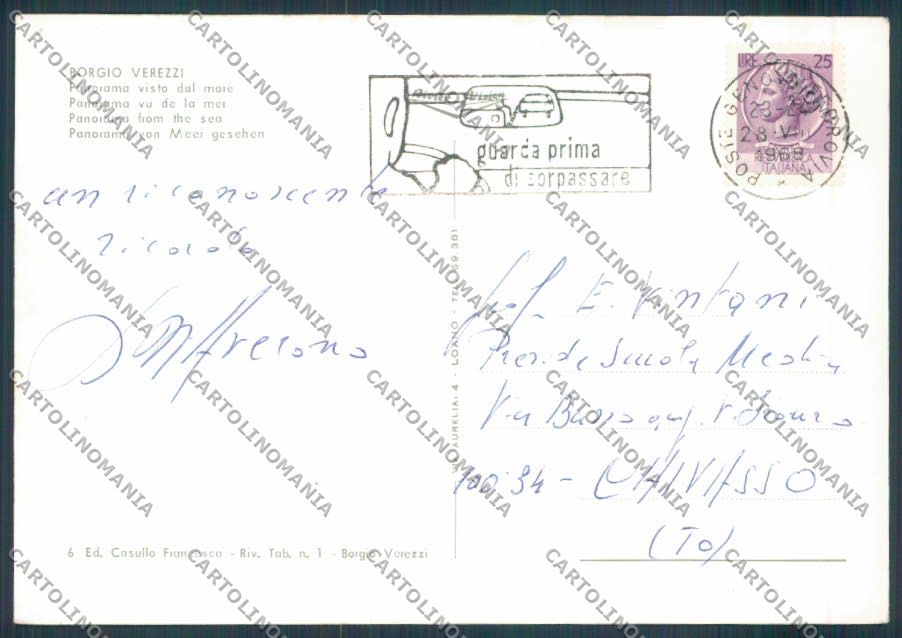 BORGIO VEREZZI
Panorama visto dal mare
Panorama vu de la mer
Panorama from the sea
Panorama von Meer gesehen
un riconoscente
ricordo
guarda prima
di sorpassare
LIRE 25
POSTE GENOVA
28
1968
ITALIANA
Prof. E.
Preside Scuola Media
Via
10034 - CHIVASSO
(To)
VIA AURELIA, 4 - LOANO - TEL. 69 381
6 Ed. Casullo Francesca - Riv. Tab. n. 1 - Borgio Verezzi
CARTOLINOMANIA